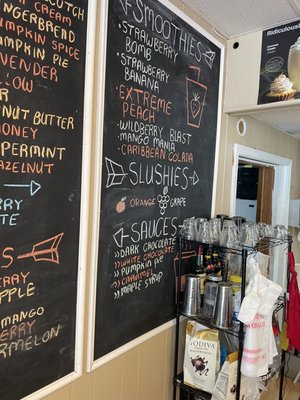 SCOTCH
T CREAM
INGERBREAD
UMPKIN SPICE
MPKIN PIE
VENDER
LOW
UT BUTTER
HONEY
PEPPERMINT
HAZELNUT
RRY
PPLE
MANGO
ERRY
ERMELON
SMOOTHIES
•STRAWBERRY
BOMB
•STRAWBERRY
BANANA
•EXTREME
PEACH
•WILDBERRY BLAST
•MANGO MANIA
•CARIBBEAN COLADA
SLUSHIES
ORANGE
GRAPE
SAUCES
»DARK CHOCOLATE
»WHITE CHOCOLATE
»PUMPKIN PIE
»CARAMEL
»MAPLE SYRUP
Ridiculous
GODIVA